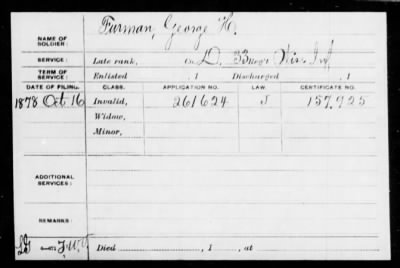 NAME OF SOLDIER: Furman, George H.
SERVICE: Late rank, Co. D, 33 Reg't Wis. Inf
TERM OF SERVICE: Enlisted , 1 Discharged , 1
DATE OF FILING. CLASS. APPLICATION NO. LAW. CERTIFICATE NO.
1878 Oct 16 Invalid, 261624 157.925
Widow,
Minor,
ADDITIONAL SERVICES:
REMARKS:
Died , 1 , at